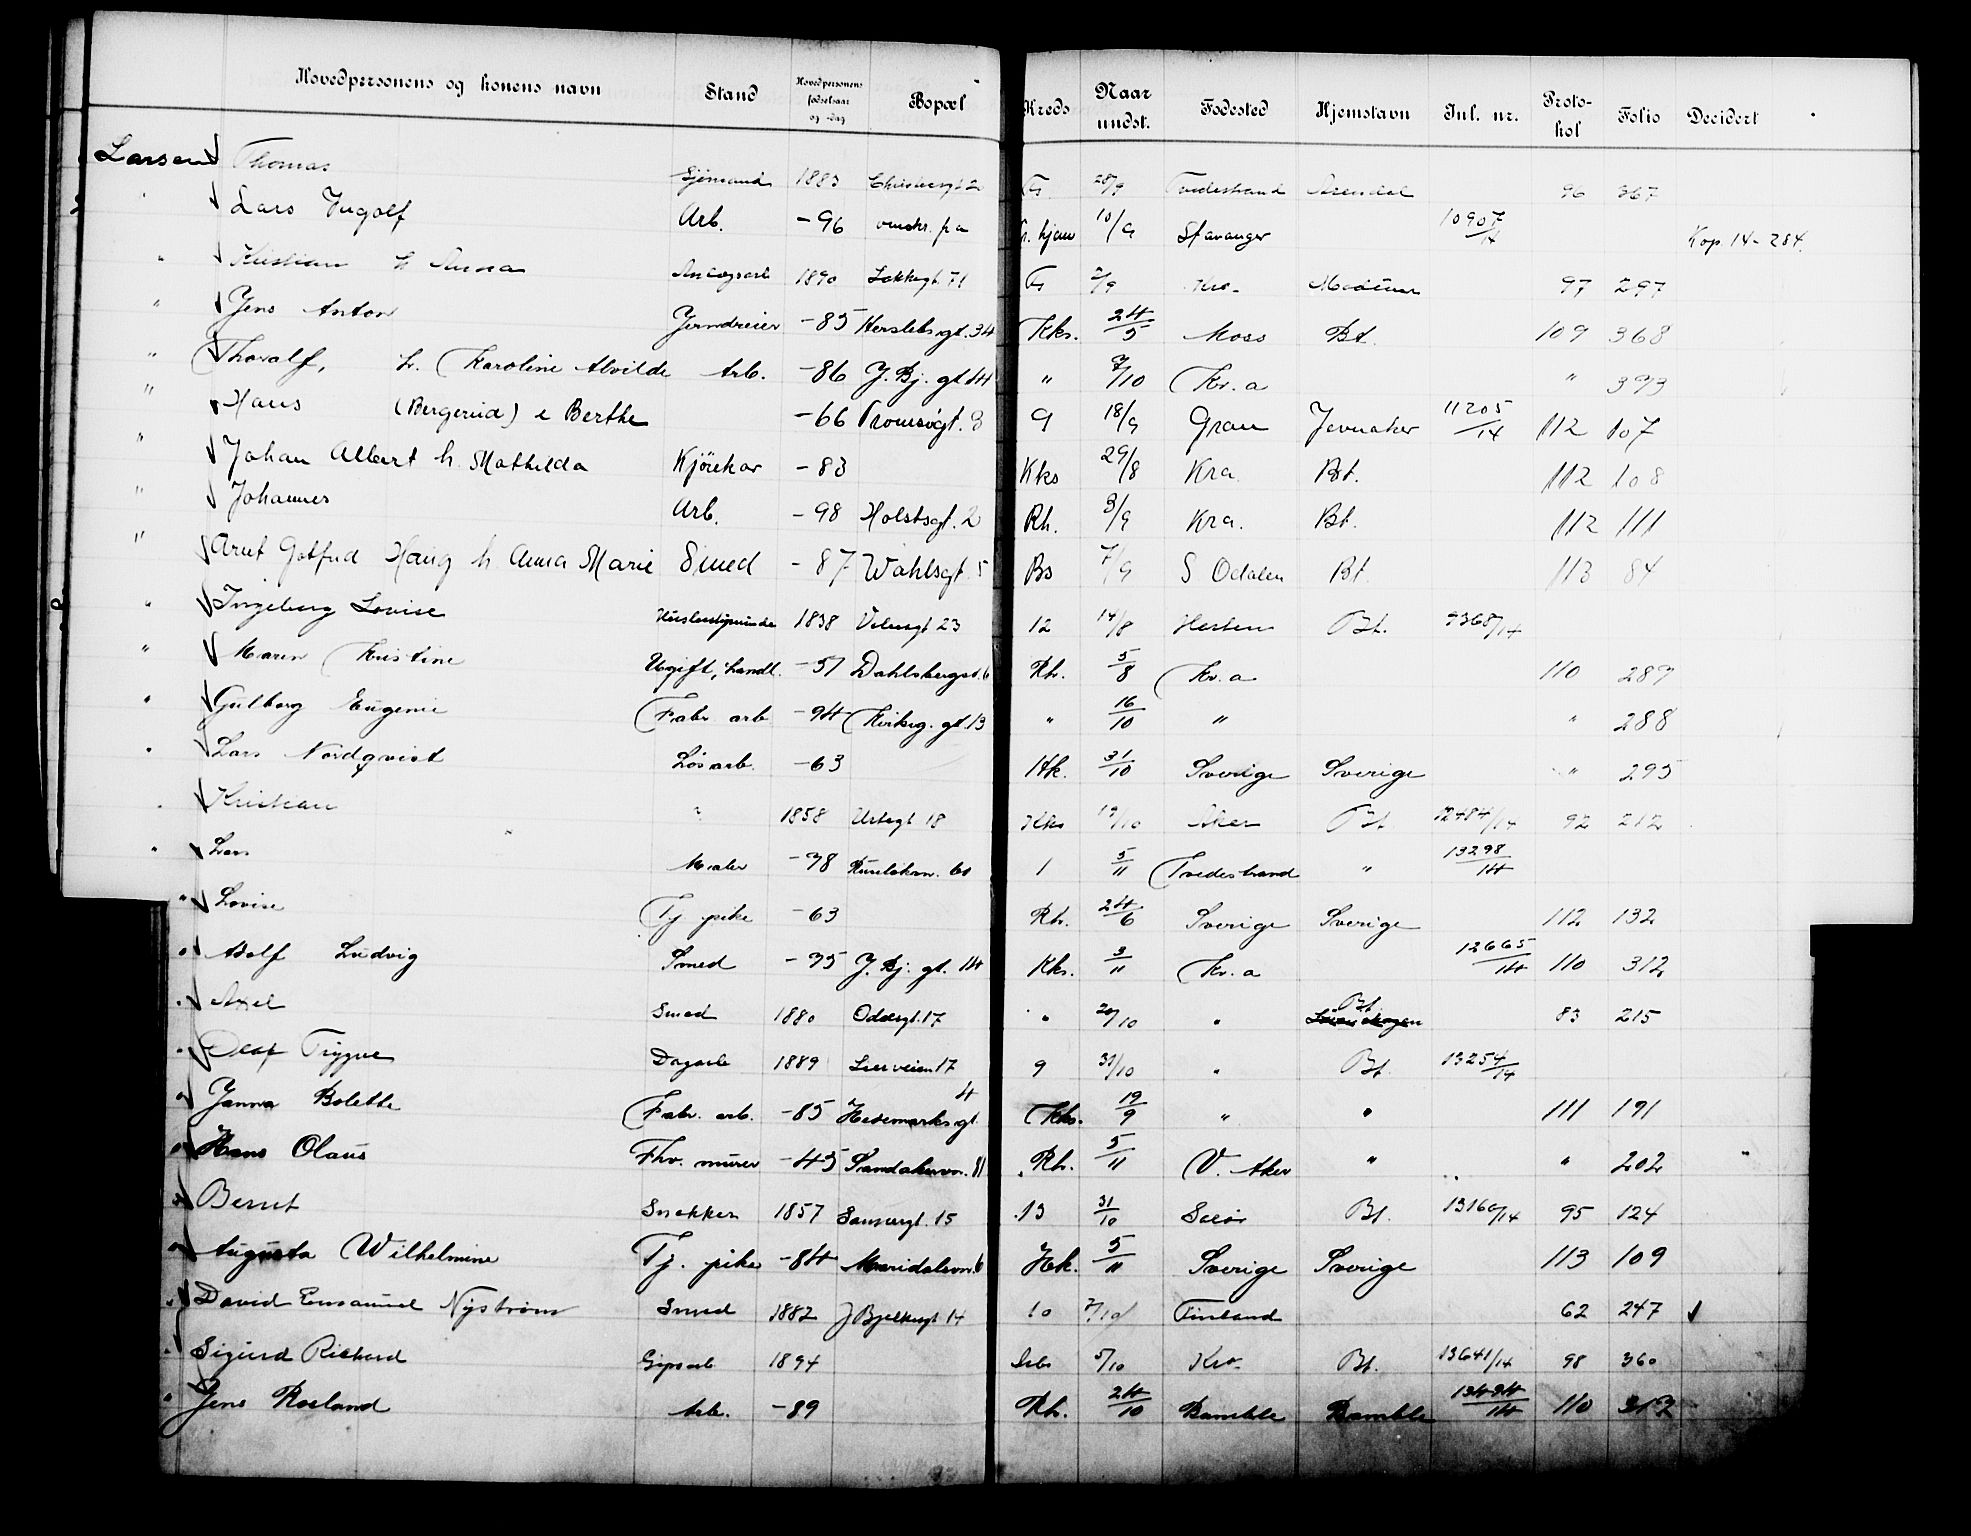 Hovedpersonens og konens navn Stand Hovedpersonens fødselsaar og -dag Bopæl Kreds Naar undst. Fødested Hjemstavn Inl. nr. Proto-kol Folio Decidert
Larsen Thomas Sjømand 1883 Fs 28/9 Tvedestrand Arendal 96 367
" Lars Ingolf Arb. -96 omstr. fra hjem 10/9 Stavanger 10907/14 Kop. 14-284.
" Kristian h Anna 1890 Lakkegt. 71 Fs 2/9 Kra Modum 97 297
" Jens Anton Jerndreier -85 Herslebsgt. 34 Kks. 24/5 Moss Bt. 109 368
" Thoralf, h. Karoline Alvilde Arb. -86 J. Bj. gt. 14 " 7/10 Kr. a " 393
" Hans (Bergerud) e Berthe -66 Tromsøgt. 3 9 18/9 Gran Jevnaker 11205/14 112 107
" Johan Albert h. Mathilda Kjørekar -83 Kks 29/8 Kra. Bt. 112 108
" Johannes Arb. -98 Holstsgt. 2 Rh. 3/9 Kra. Bt. 112 111
" Arnt Gotfred Haug h Anna Marie Smed -87 Wahlsgt. 5 Bs 7/9 S Odalen Bt. 113 84
" Ingeborg Lovise 1838 23 12 14/8 Horten Bt. 9368/14
" Maren Kristine Ugift, handl. -51 Dahlsbergst. 6 Rh. 5/8 Kr. a 110 289
" Gulborg Eugenie Fabr. arb -94 gt. 13 " 16/10 " " 288
" Lars Nordqvist Løsarb. -63 Hk. 31/10 Sverige Sverige " 295
" Kristian " 1858 Urtegt 18 Kks 19/10 Aker Bt. 12484/14 92 212
" Lars Maler -38 60 1 5/11 Tvedestrand " 13298/14
" Lovise Tj pike -63 Rh. 24/6 Sverige Sverige 112 132
" Adolf Ludvig Smed -95 J. Bj. gt. 14 Kks. 3/11 Kr. a 12665/14 110 312
" Axel Smed 1880 Oddesgt. 17 " 20/10 " Bt. 83 215
" Olaf Trygve Dagarb 1889 Lierveien 17 9 31/10 " Bt. 13254/14
" Janna Bolette Fabr. arb. -85 Hedemarksgt. 4 Kks. 19/9 " " 111 191
" Hans Olaus Fhv. murer -45 Sandakervn. 81 Rh. 5/11 V. Aker " " 202 "
" Bernt Snekker 1857 Sannergt. 15 13 31/10 Solør Bt. 13160/14 95 124
" Augusta Wilhelmine Tj. pike -84 Maridalsvn. 6 Hk. 5/11 Sverige Sverige 113 109
" David Emanuel Nystrøm Smed 1882 J Bjelkesgt 14 10 7/10 Finland 62 247
" Sigurd Richard Gipsarb 1894 5/10 Kra Bt. 13641/14 98 360
" Jens Roeland Arb. -89 Rh. 24/10 Bamble Bamble 13494/14 110 313